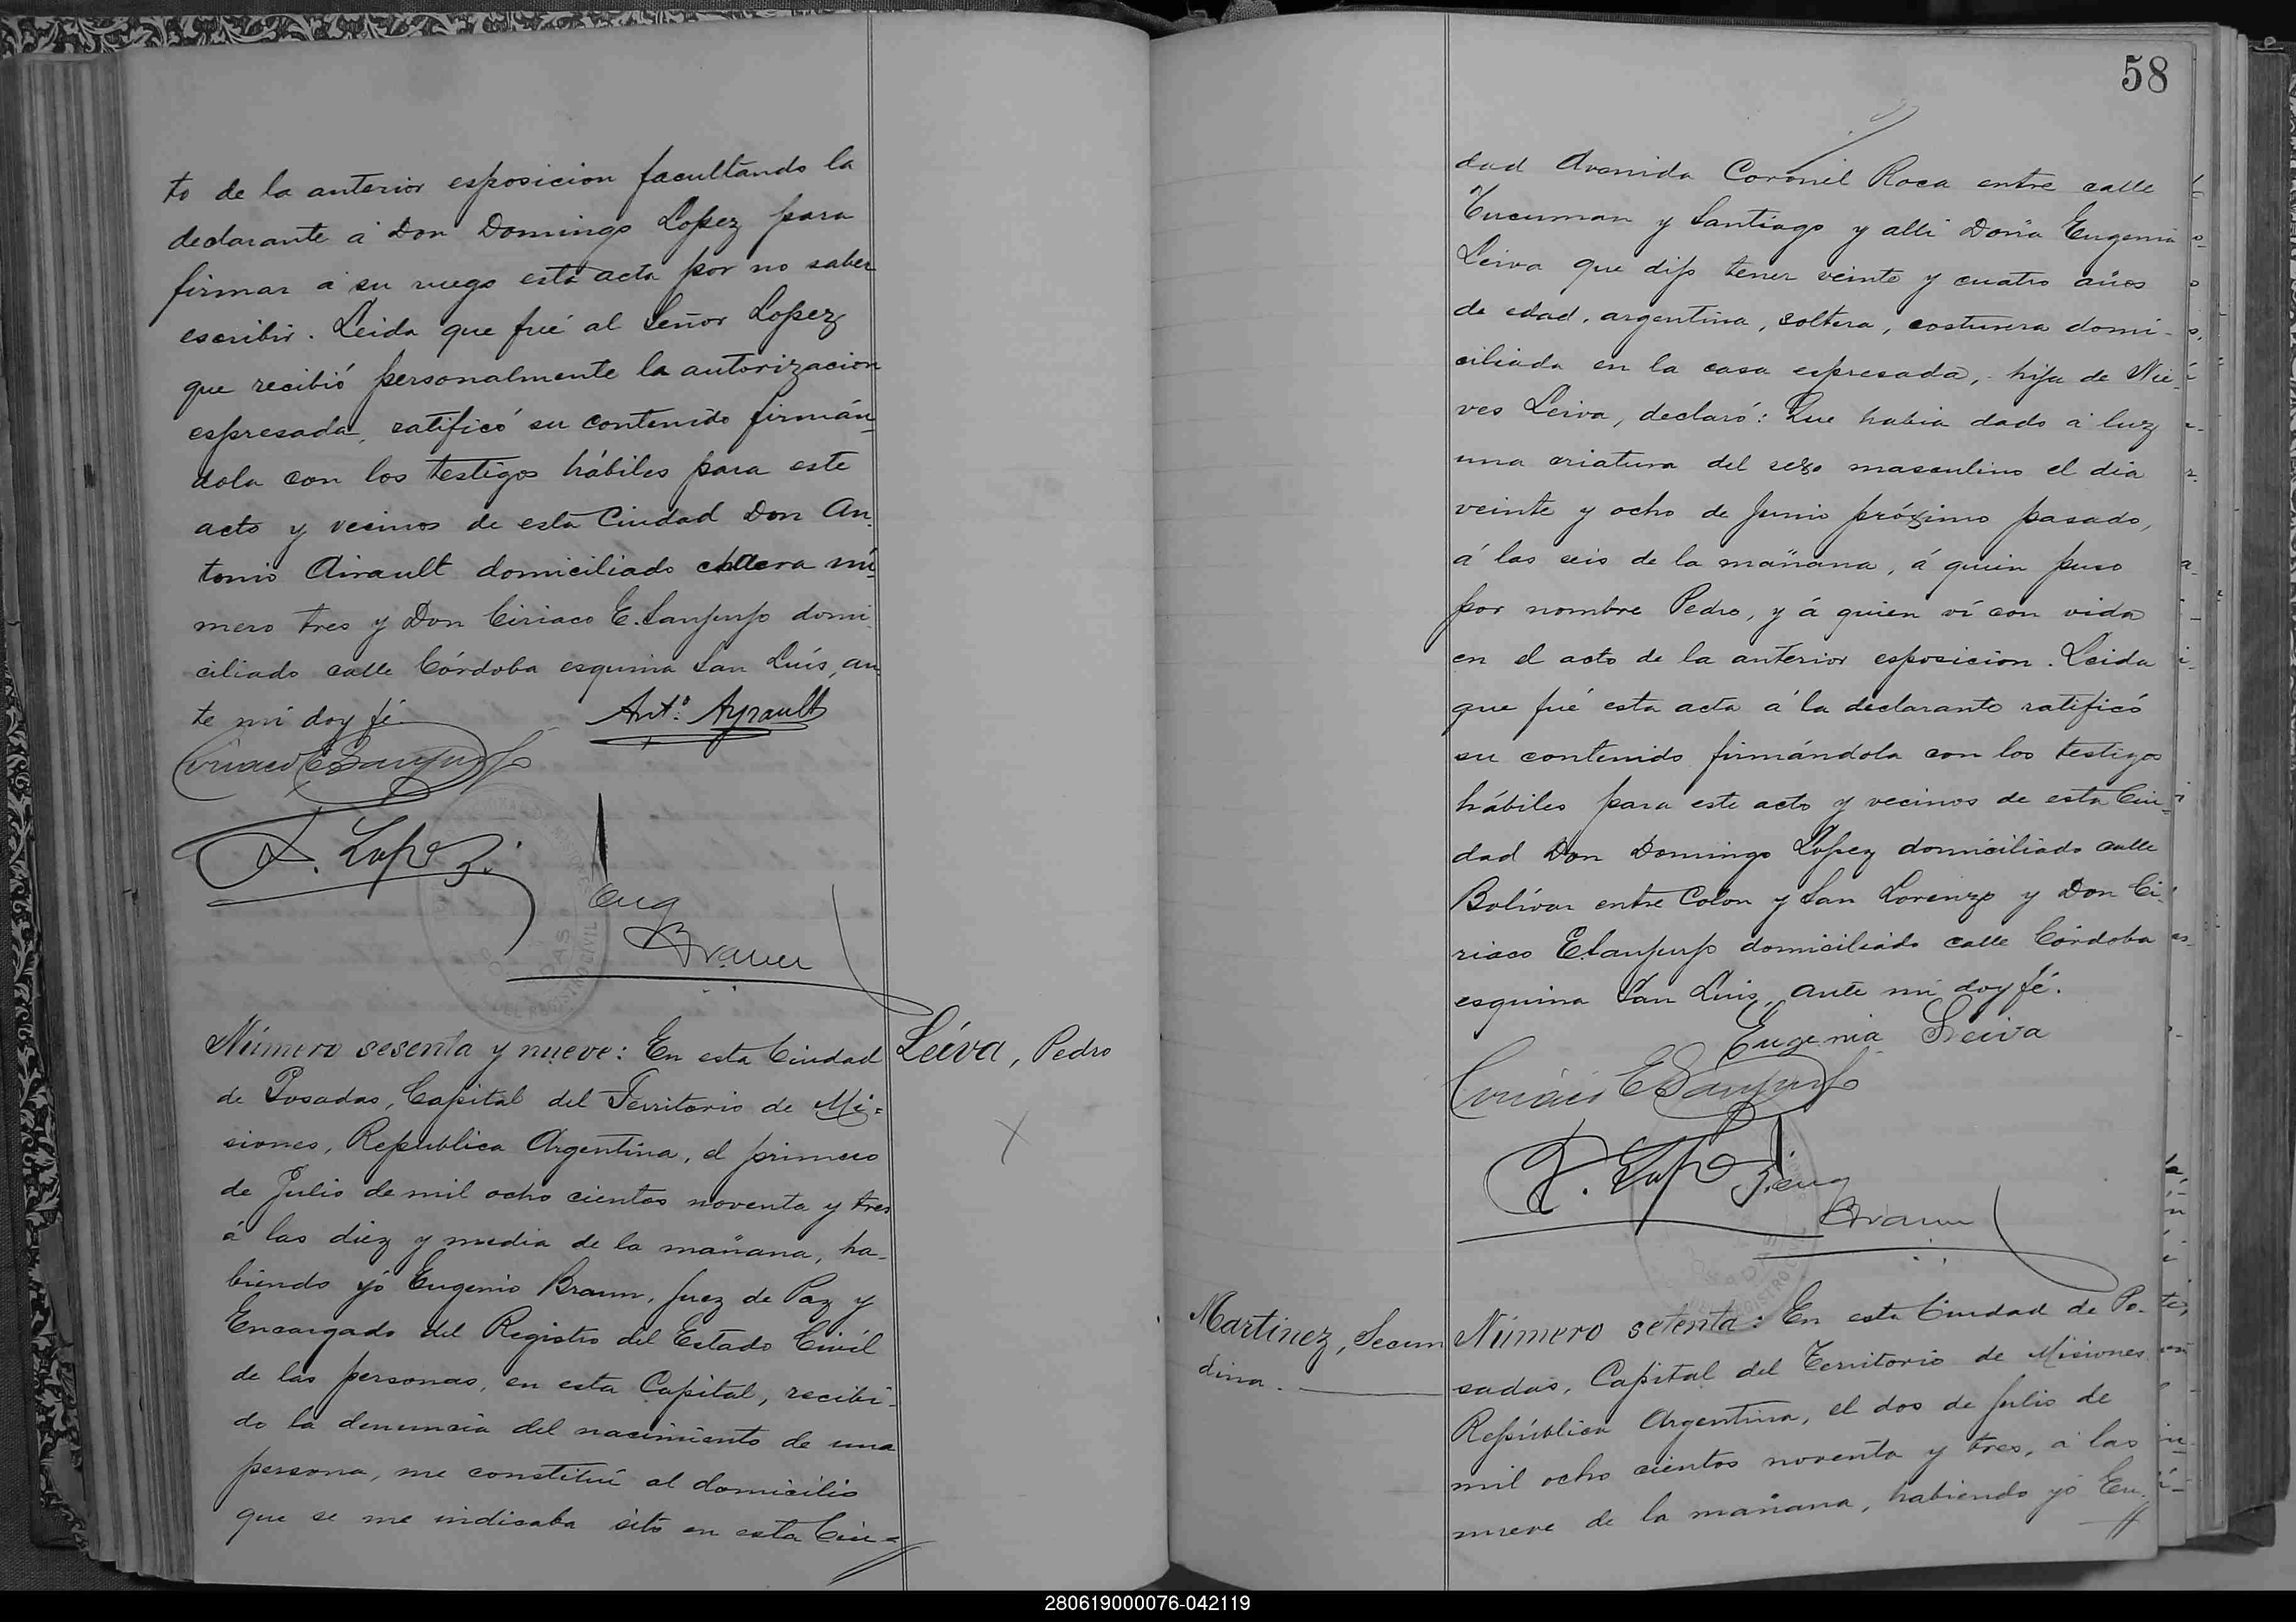 to de la anterior esposicion facultando la
declarante á Don Domingo Lopez para
firmar á su ruego esta acta por no saber
escribir. Leida que fué al Señor Lopez
que recibió personalmente la autorizacion
espresada, ratificó su contenido firmán
dola con los testigos hábiles para este
acto y vecinos de esta Ciudad Don An
tonio Airault domiciliado nú
mero tres y Don Ciriaco E. Sanjurjo domi
ciliado calle Córdoba esquina San Luís, an
te mí doy fé.
Ant.º Ayrault
Ciriaco E Sanjurjo
D. Lopez
Eug
Braun
DEL REGISTRO CIVIL
Número sesenta y nueve: En esta Ciudad
de Posadas, Capital del Territorio de Mi=
siones, Republica Argentina, el primero
de Julio de mil ocho cientos noventa y tres
á las diez y media de la mañana, ha-
biendo yó Eugenio Braun, Juez de Paz y
Encargado del Registro del Estado Civil
de las personas, en esta Capital, recibi-
do la denuncia del nacimiento de una
persona, me constituí al domicilio
que se me indicaba sito en esta Ciu=
Leiva, Pedro
58
dad Avenida Coronel Roca entre calle
Tucuman y Santiago y alli Doña Eugenia
Leiva que dijo tener veinte y cuatro años
de edad, argentina, soltera, costurera domi-
ciliada en la casa espresada, hija de Nie-
ves Leiva, declaró: Que habia dado á luz
una criatura del sexo masculino el dia
veinte y ocho de Junio próximo pasado,
á las seis de la mañana, á quien puso
por nombre Pedro, y á quien ví con vida
en el acto de la anterior esposicion. Leida
que fué esta acta á la declarante ratificó
su contenido firmándola con los testigos
hábiles para este acto y vecinos de esta Ciu-
dad Don Domingo Lopez domiciliado calle
Bolívar entre Colon y San Lorenzo y Don Ci-
riaco E Sanjurjo domiciliado calle Córdoba
esquina San Luis, ante mi doy fé.
Eugenia Leiva
Ciriaco E Sanjurjo
D. Lopez
Eug
Braun
Martinez, Secun
dina.
Número setenta: En esta Ciudad de Po-
sadas, Capital del Territorio de Misiones
República Argentina, el dos de Julio de
mil ocho cientos noventa y tres, á las
nueve de la mañana, habiendo yó Eu
280619000076-042119